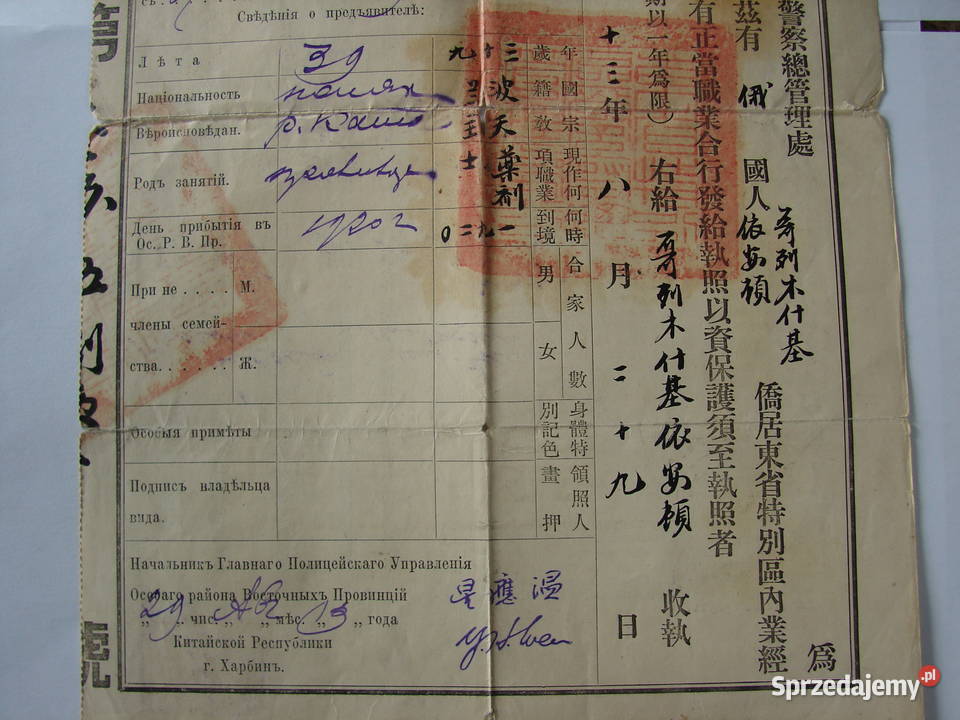 Свѣдѣнія о предъявителѣ:
Лѣта 39
Національность поляк
Вѣроисповѣдан. р. Като
Родъ занятій.
День прибытія въ Ос. Р. В. Пр. 1920 г
При не . . . . М.
члены семей-
ства. . . . . . Ж.
Особыя примѣты
Подпись владѣльца
вида.
Начальникъ Главнаго Полицейскаго Управленія
Особаго района Восточныхъ Провинцій
„ 29 „ чис. „ „ мѣс. 13 „ года
Китайской Республики
г. Харбинъ.
溫應星
警察總管理處
爲
茲有 俄 國人
哥列木什基
依安頓
僑居東省特別區內業經
有正當職業合行發給執照以資保護須至執照者
期以一年爲限）
右給 哥列木什基依安頓 收執
十三年 八 月 二十九 日
年歲 三十九
國籍 波
宗教 天
現作何項職業 藥剂
何時到境 一九二0
合家人數 男 女
身體特別記色
領照人畫押
號
Sprzedajemy.pl